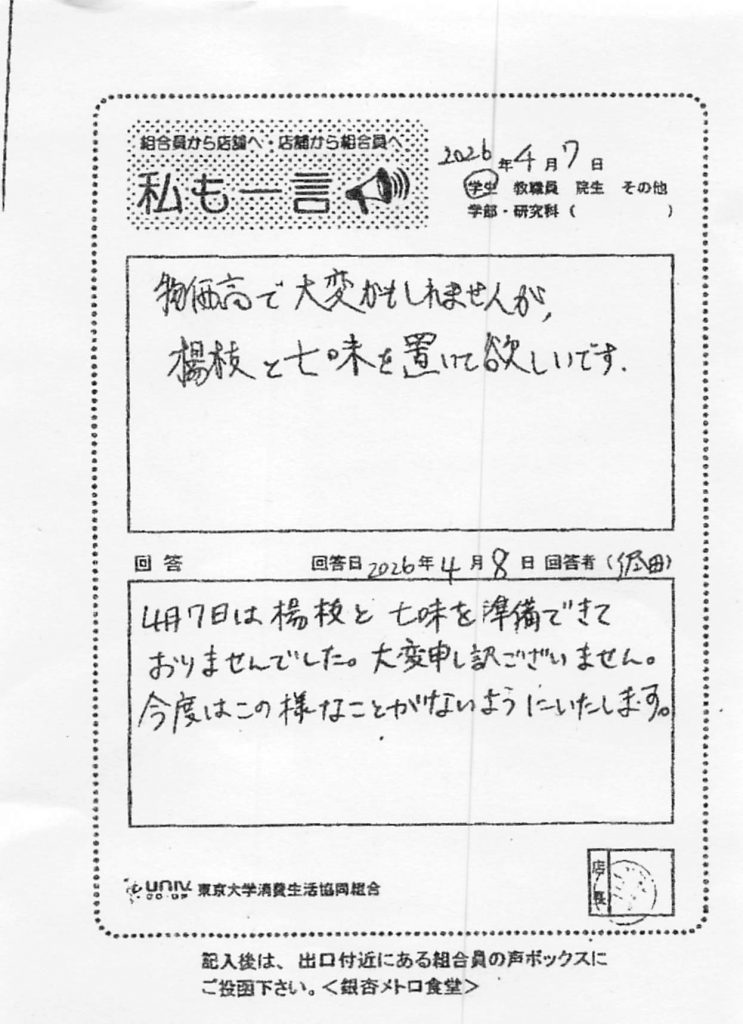 組合員から店舗へ・店舗から組合員へ
私も一言
2026年4月7日
学生 教職員 院生 その他
学部・研究科（　　　　　）
物価高で大変かもしれませんが、
楊枝と七味を置いて欲しいです.
回答 回答日2026年4月8日 回答者（　田）
4月7日は楊枝と七味を準備できて
おりませんでした。大変申し訳ございません。
今度はこの様なことがないようにいたします。
店長
UNIV.
CO-OP
東京大学消費生活協同組合
記入後は、出口付近にある組合員の声ボックスに
ご投函下さい。＜銀杏メトロ食堂＞